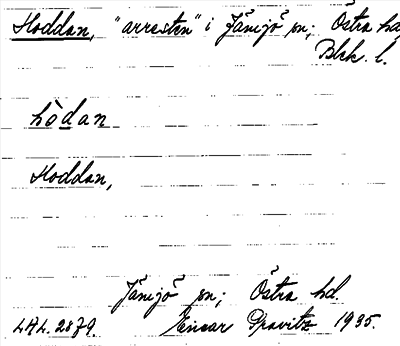 Hoddan, "arresten" i Jämjö sn; Östra hd,
Blek. l.
hòdan
Hoddan,
Jämjö sn; Östra hd.
LAL. 2879. Einar Gravitz 1935.